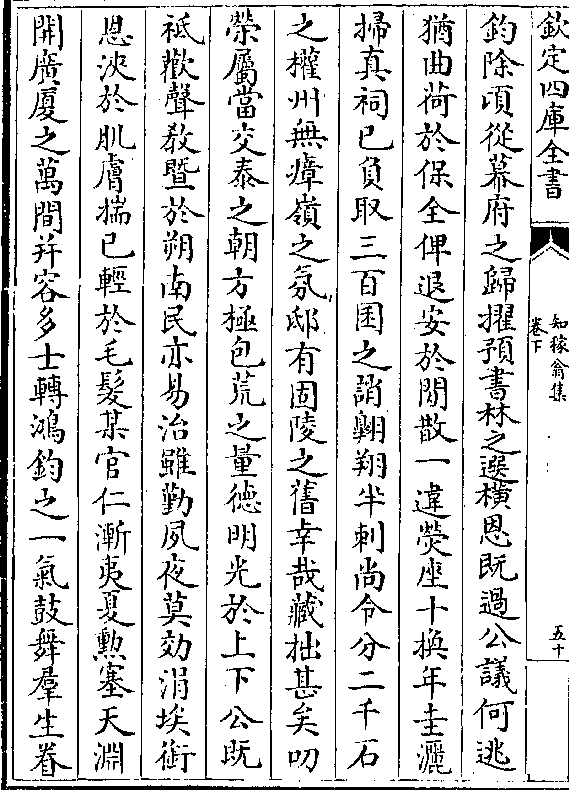 欽定四庫全書
知稼翁集
卷下
五十
鈞除頃從幕府之歸擢預書林之選横恩既過公議何逃
猶曲荷於保全俾退安於閒散一違熒座十換年圭灑
掃真祠已負取三百囷之誚翺翔半刺尚令分二千石
之權州無瘴嶺之氛邸有固陵之舊幸哉藏拙甚矣叨
榮屬當交泰之朝方極包荒之量德明光於上下公既
祗歡聲教暨於朔南民亦易治雖勤夙夜莫効涓埃銜
恩浹於肌膚揣已輕於毛髮某官仁漸夷夏勲塞天淵
開廣厦之萬間并容多士轉鴻鈞之一氣鼓舞羣生眷